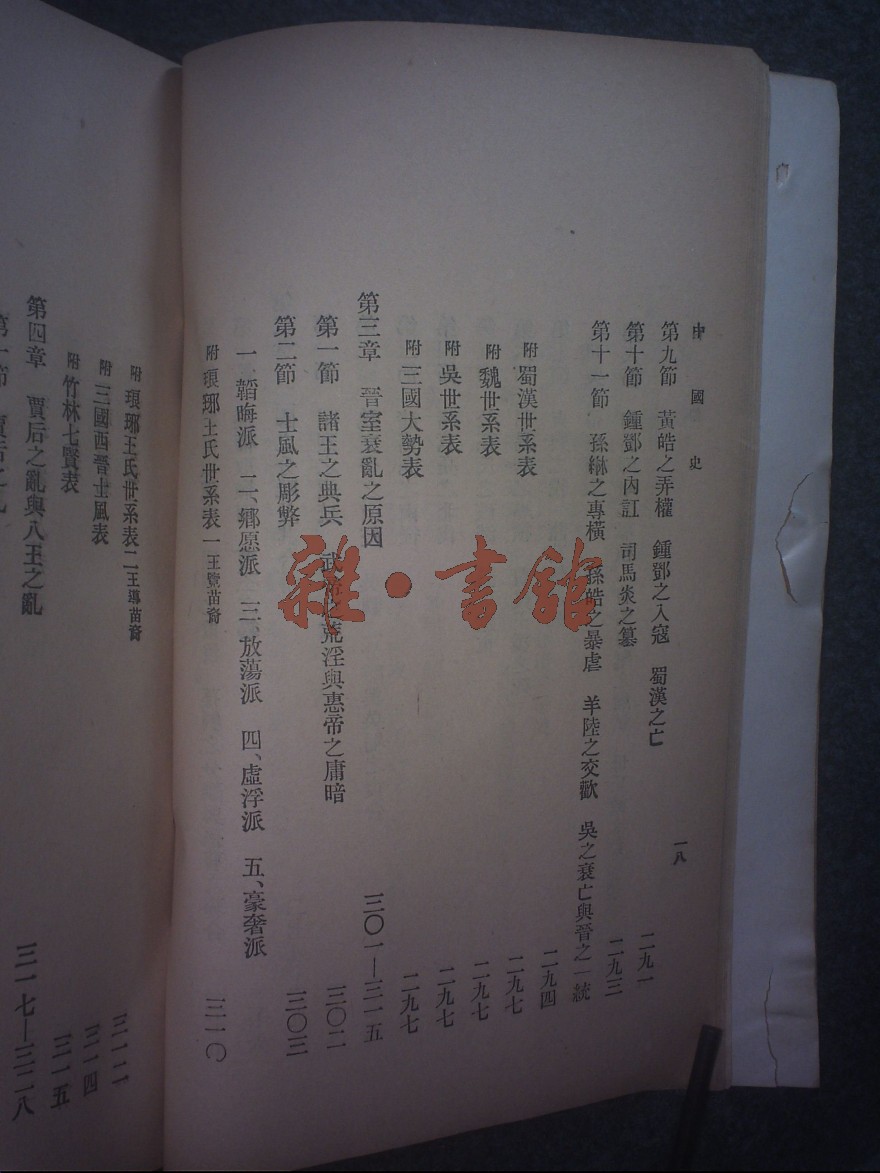 中國史
一八
第九節　黃皓之弄權　鍾鄧之入寇　蜀漢之亡
二九一
第十節　鍾鄧之內訌　司馬炎之篡
二九三
第十一節　孫綝之專橫　孫皓之暴虐　羊陸之交歡　吳之衰亡與晉之一統
二九四
附蜀漢世系表
二九七
附魏世系表
二九七
附吳世系表
二九七
附三國大勢表
二九七
第三章　晉室衰亂之原因
三〇一—三一五
第一節　諸王之典兵　武帝之荒淫與惠帝之庸暗
三〇二
第二節　士風之彫弊
三〇三
一、韜晦派　二、鄉愿派　三、放蕩派　四、虛浮派　五、豪奢派
附琅琊王氏世系表一王覽苗裔
三一〇
附琅琊王氏世系表二王導苗裔
三一二
附三國西晉士風表
三一四
附竹林七賢表
三一五
第四章　賈后之亂與八王之亂
三一七—三二八
第一節　賈后之亂
雜·書館